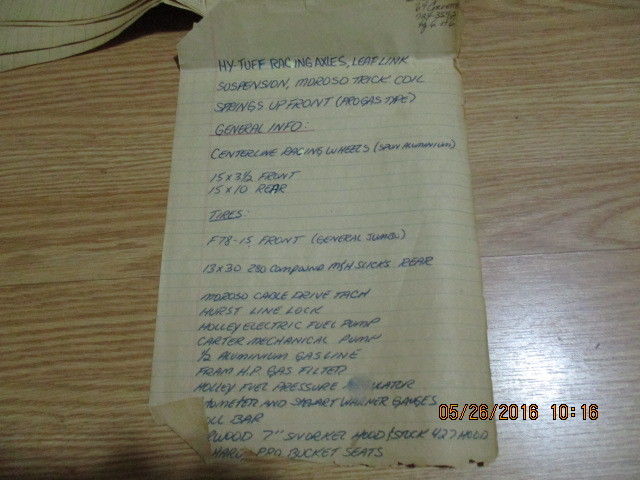 HY-TUFF RACING AXLES, LEAF LINK
SUSPENSION, MOROSO TRICK COIL
SPRINGS UP FRONT (PRO GAS TYPE)
GENERAL INFO:
CENTERLINE RACING WHEELS (SPUN ALUMINIUM)
15 X 3 1/2 FRONT
15 X 10 REAR
TIRES:
F78-15 FRONT (GENERAL JUMBO)
13 X 30 280 COMPOUND M/H SLICKS REAR
MOROSO CABLE DRIVE TACH
HURST LINE LOCK
HOLLEY ELECTRIC FUEL PUMP
CARTER MECHANICAL PUMP
1/2 ALUMINIUM GAS LINE
FRAM H.P. GAS FILTER
HOLLEY FUEL PRESSURE ULATOR
TOMETER AND STEWART WARNER GAUGES
OLL BAR
RWOOD 7" SNORKEL HOOD & STOCK 427 HOOD
HARD PRO BUCKET SEATS
05/26/2016 10:16